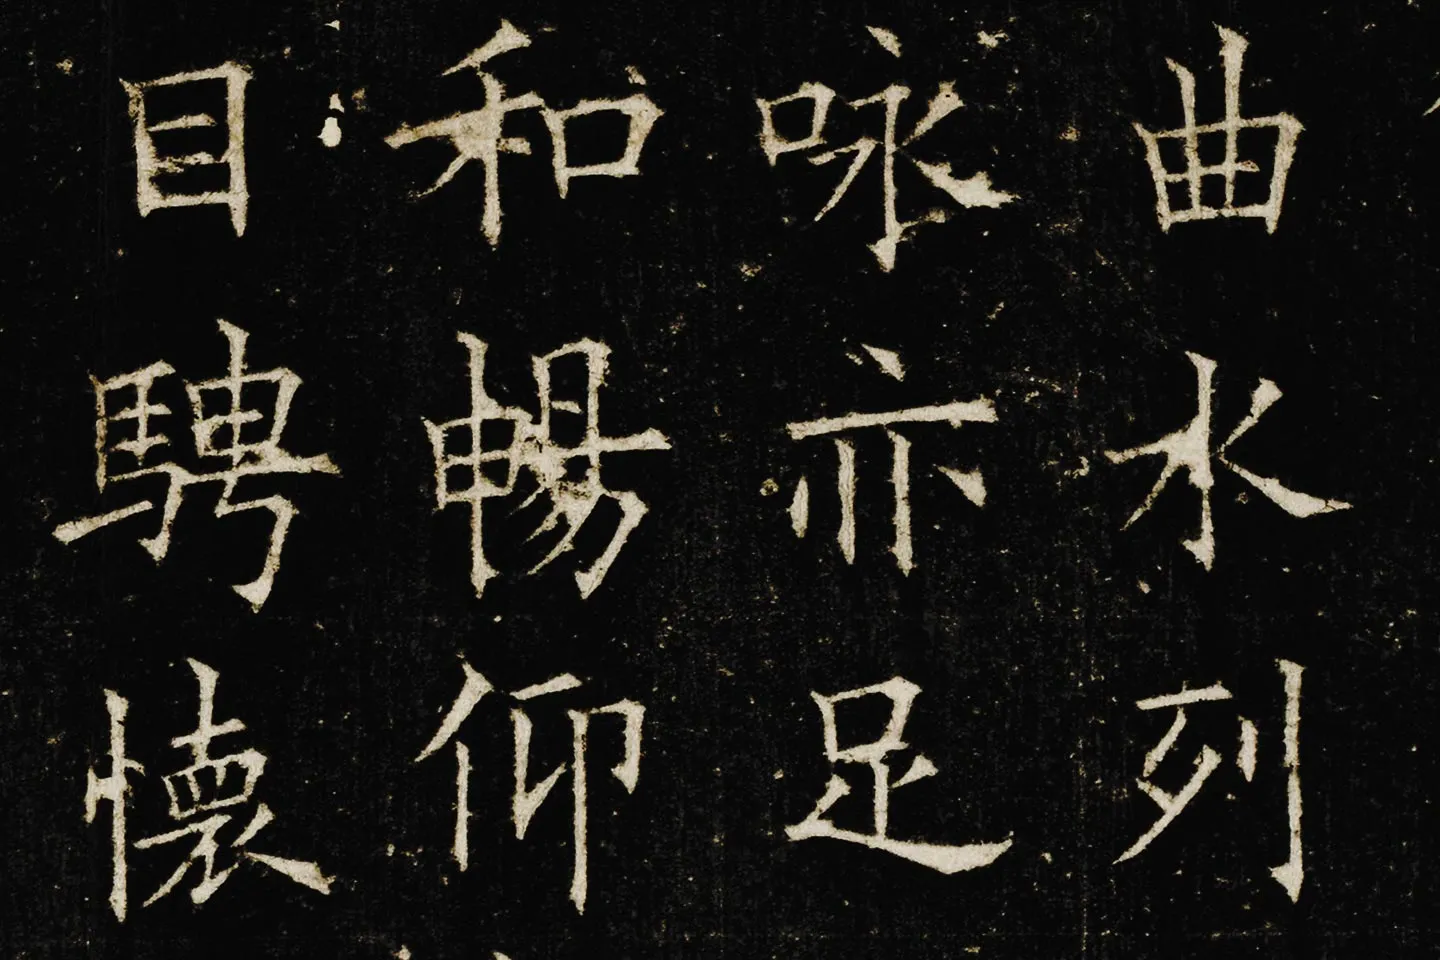 曲水列
咏亦足
和暢仰
目騁懷